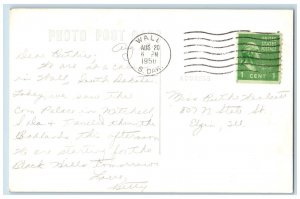 PHOTO POST
WALL
AUG 20
6 PM
1950
S. DAK.
1 CENT 1
ADDRESS
Dear Ruthie:
We are in a cabin
in Wall, South Dakota
today we saw the
Corn Palace in Mitchell,
thru the
Badlands this afternoon
We are starting for the
Black Hills tomorrow
Love,
Betty
Miss Ruth
N. State St.
Elgin, Ill.